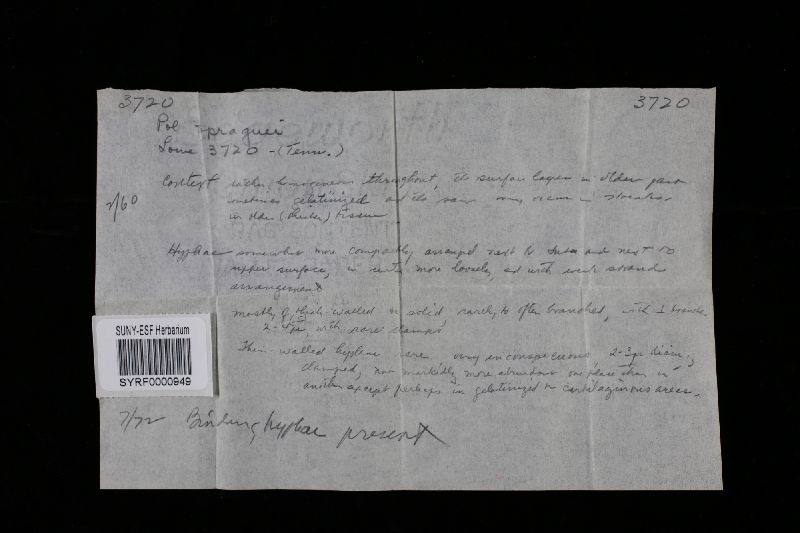 3720 3720
Pol. spraguei
Lowe 3720 - (Tenn.)
2/60
Context rather homogeneous throughout, the surface layer in older part
sometimes gelatinized and the same may occur in streaks
in older (thicker) tissue
Hyphae somewhat more compactly arranged next to tubes and next to
upper surface, in center more loosely, and with strand
arrangement
mostly thick-walled or solid rarely to often branched, with branches
2- µ with rare clamps
Thin-walled hyphae rare very inconspicuous 2-3µ diam.,
clamped, not markedly more abundant one place than in
another except perhaps in gelatinized or cartilaginous areas.
SUNY-ESF Herbarium
SYRF0000949
7/72 Binding hyphae present